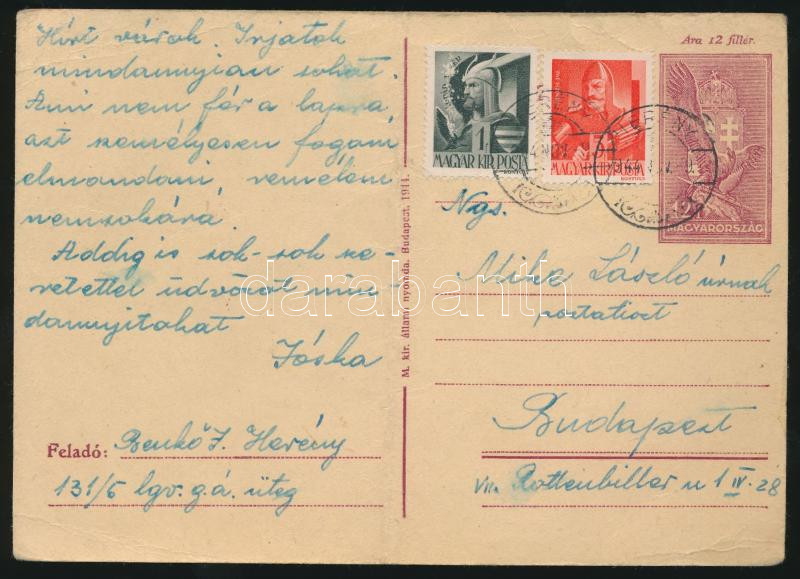 Hírt várok. Írjatok
mindannyian sokat.
Ami nem fér a lapra,
azt személyesen fogom
elmondani, remélem
nemsokára.
Addig is sok-sok sze-
retettel üdvözöl min-
dannyitokat
Jóska
Feladó: Benkő J. Herény
131/5 lgv. g. á. üteg
M. kir. állami nyomda. Budapest, 1944.
Ara 12 fillér.
1f
MAGYAR KIR. POSTA
MAGYAR KIR. POSTA
HERÉNY
12f
MAGYARORSZÁG
Ngs.
Mike László úrnak
postatiszt
Budapest
VII. Rottenbiller u 1 IV. 28
darabanth